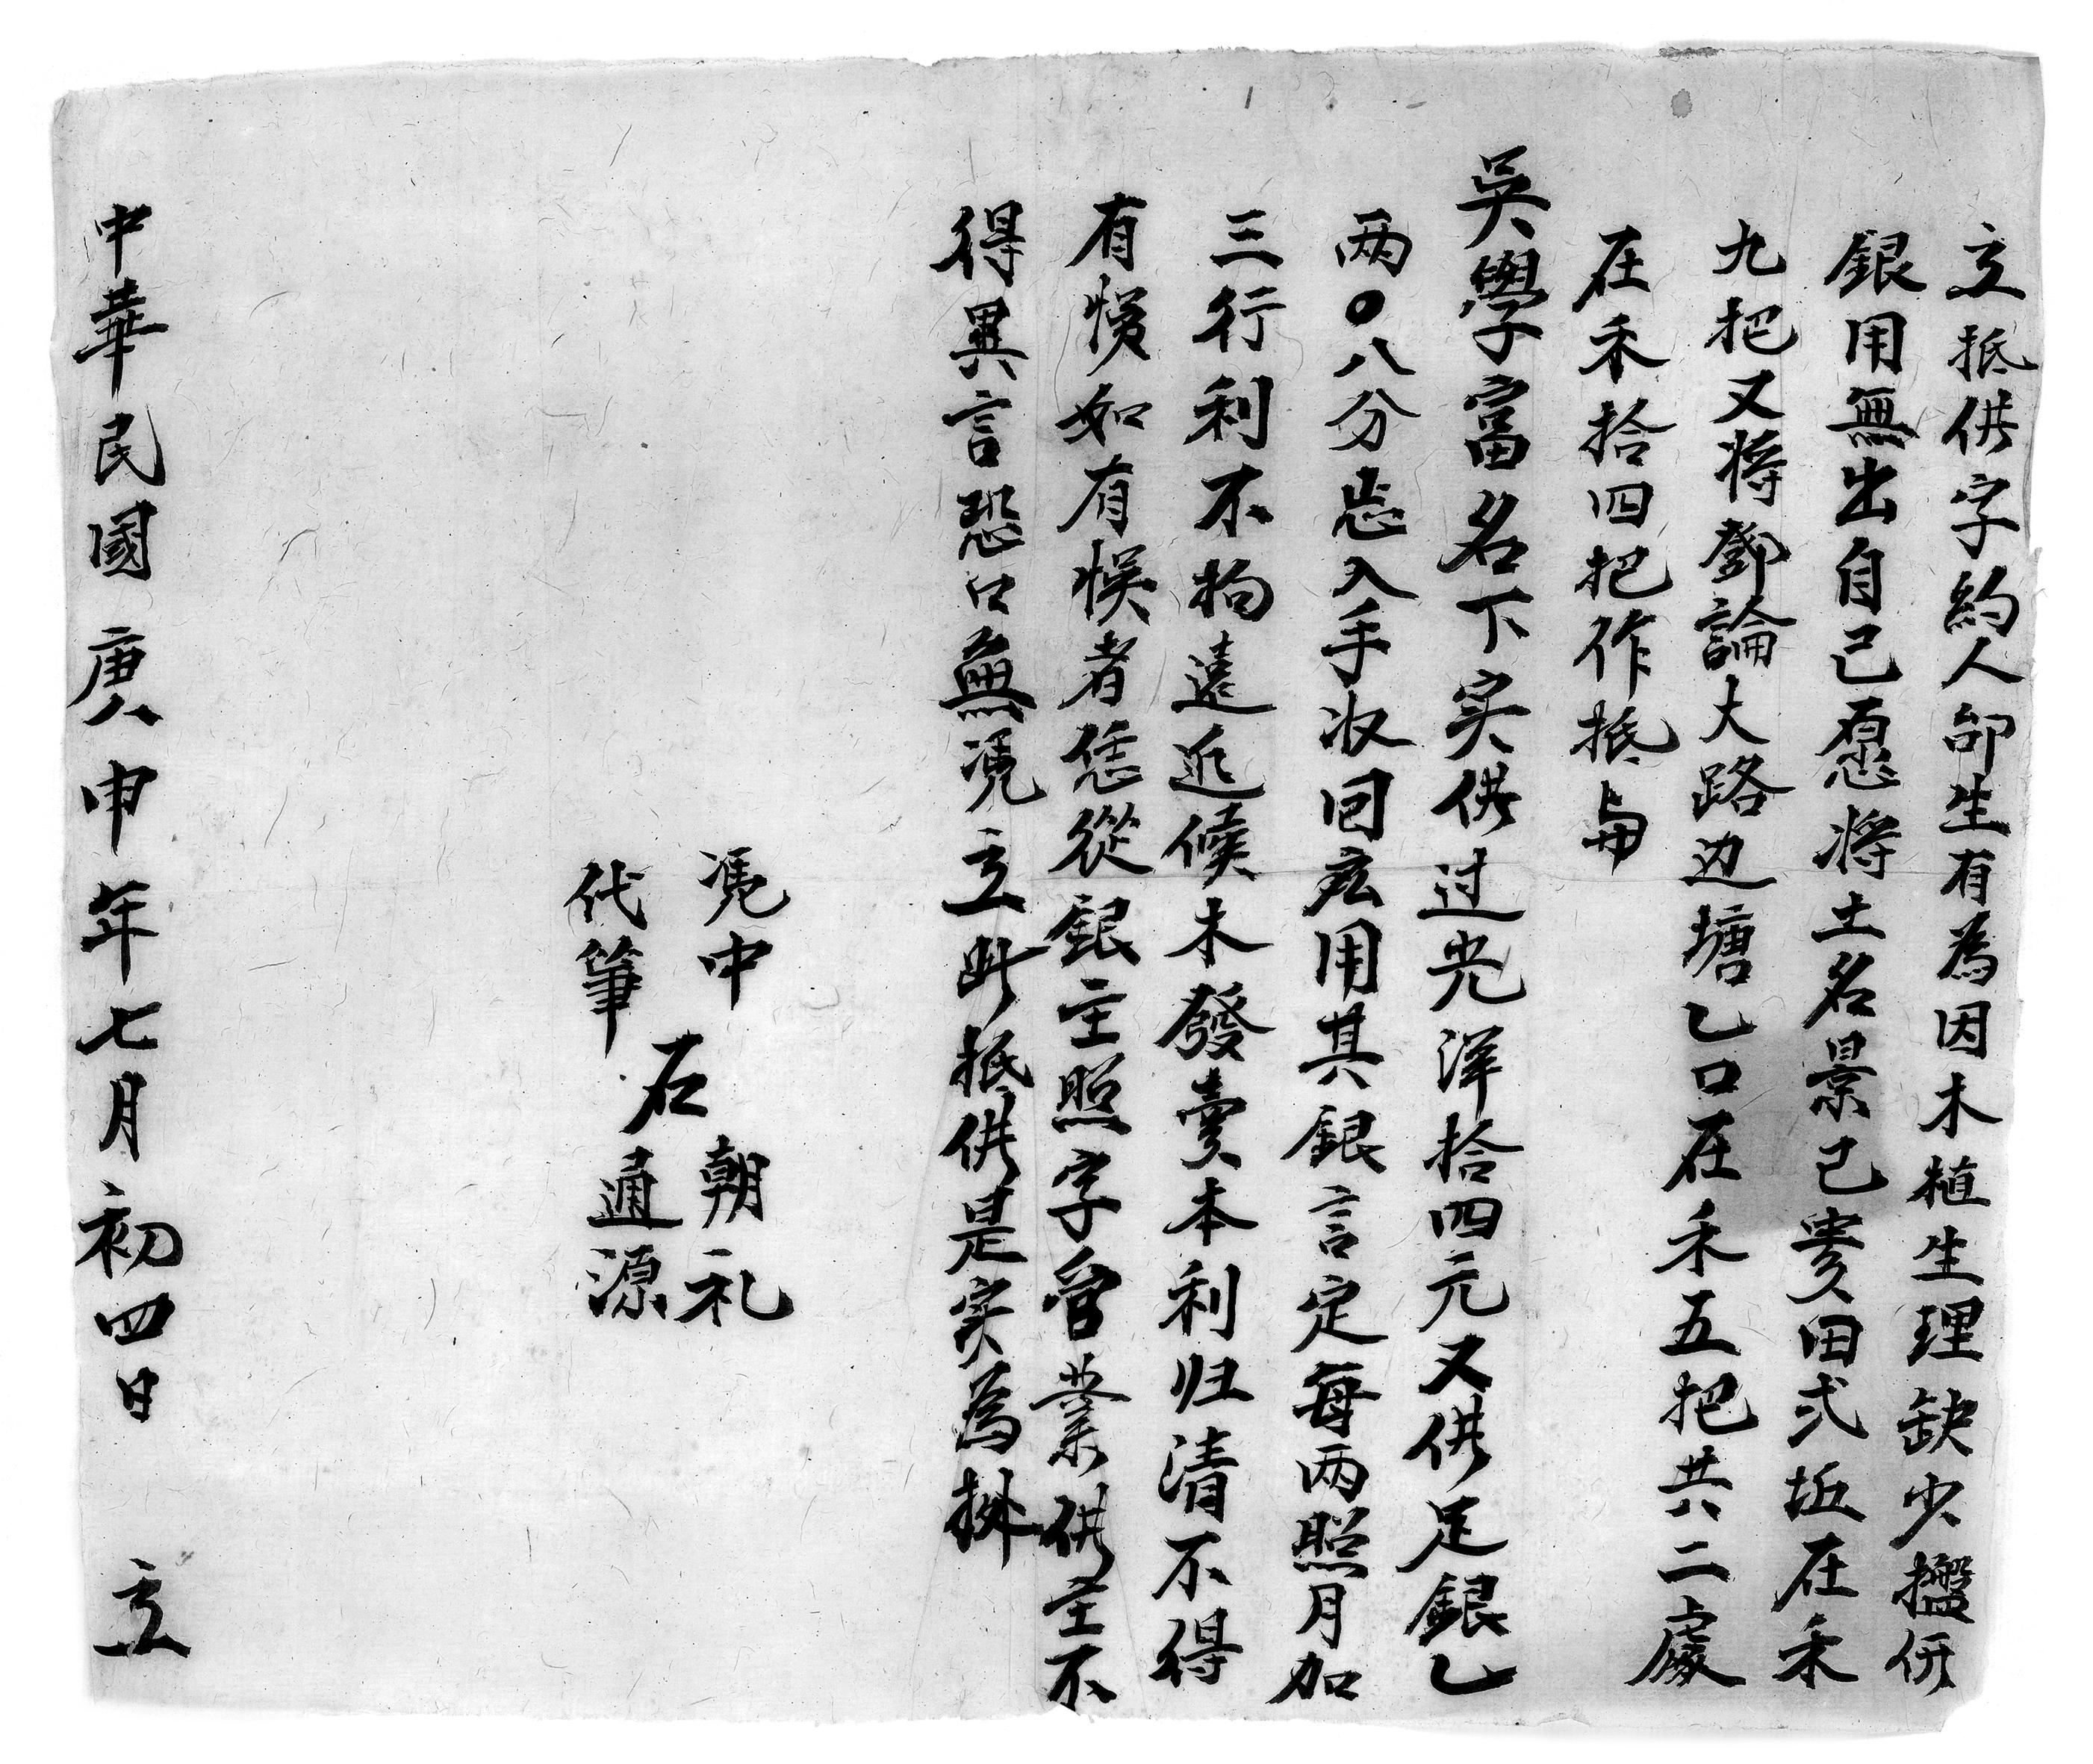 立抵供字約人邰生有為因木植生理缺少盤併
銀用無出自己愿将土名景己寨田弍坵在禾
九把又将鄧論大路边塘乙口在禾五把共二處
在禾拾四把作抵与
吳學富名下实供过光洋拾四元又供足銀乙
两〇八分忐入手收回應用其銀言定每两照月加
三行利不拘遠近候木發賣本利归清不得
有悞如有悞者恁從銀主照字管業供主不
得異言恐口無凴立此抵供是实為拠
凴中 石朝礼
代筆 石通源
中華民國庚申年七月初四日 立